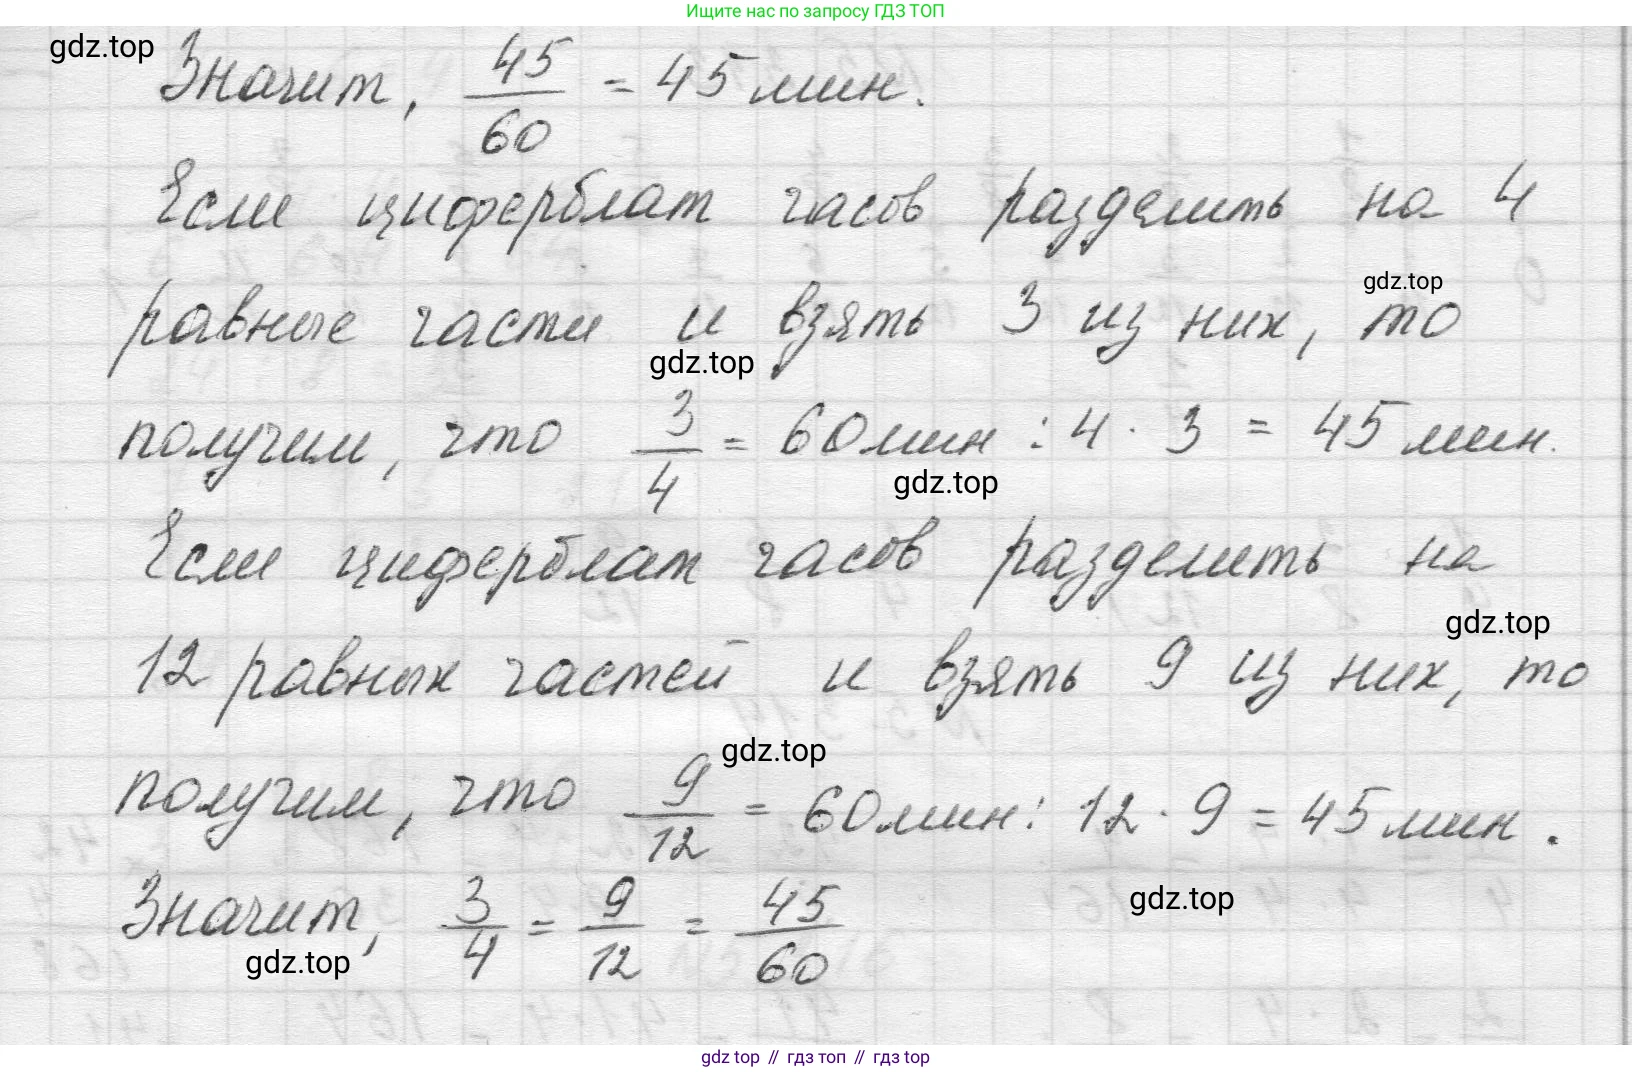 Ищите нас по запросу ГДЗ ТОП
gdz.top
Значит, 45/60 = 45 мин.
Если циферблат часов разделить на 4
gdz.top
равные части и взять 3 из них, то
gdz.top
получим, что 3/4 = 60 мин : 4 · 3 = 45 мин.
gdz.top
Если циферблат часов разделить на
gdz.top
12 равных частей и взять 9 из них, то
gdz.top
получим, что 9/12 = 60 мин : 12 · 9 = 45 мин.
gdz.top
Значит, 3/4 = 9/12 = 45/60
gdz.top
gdz top // гдз топ // гдз top